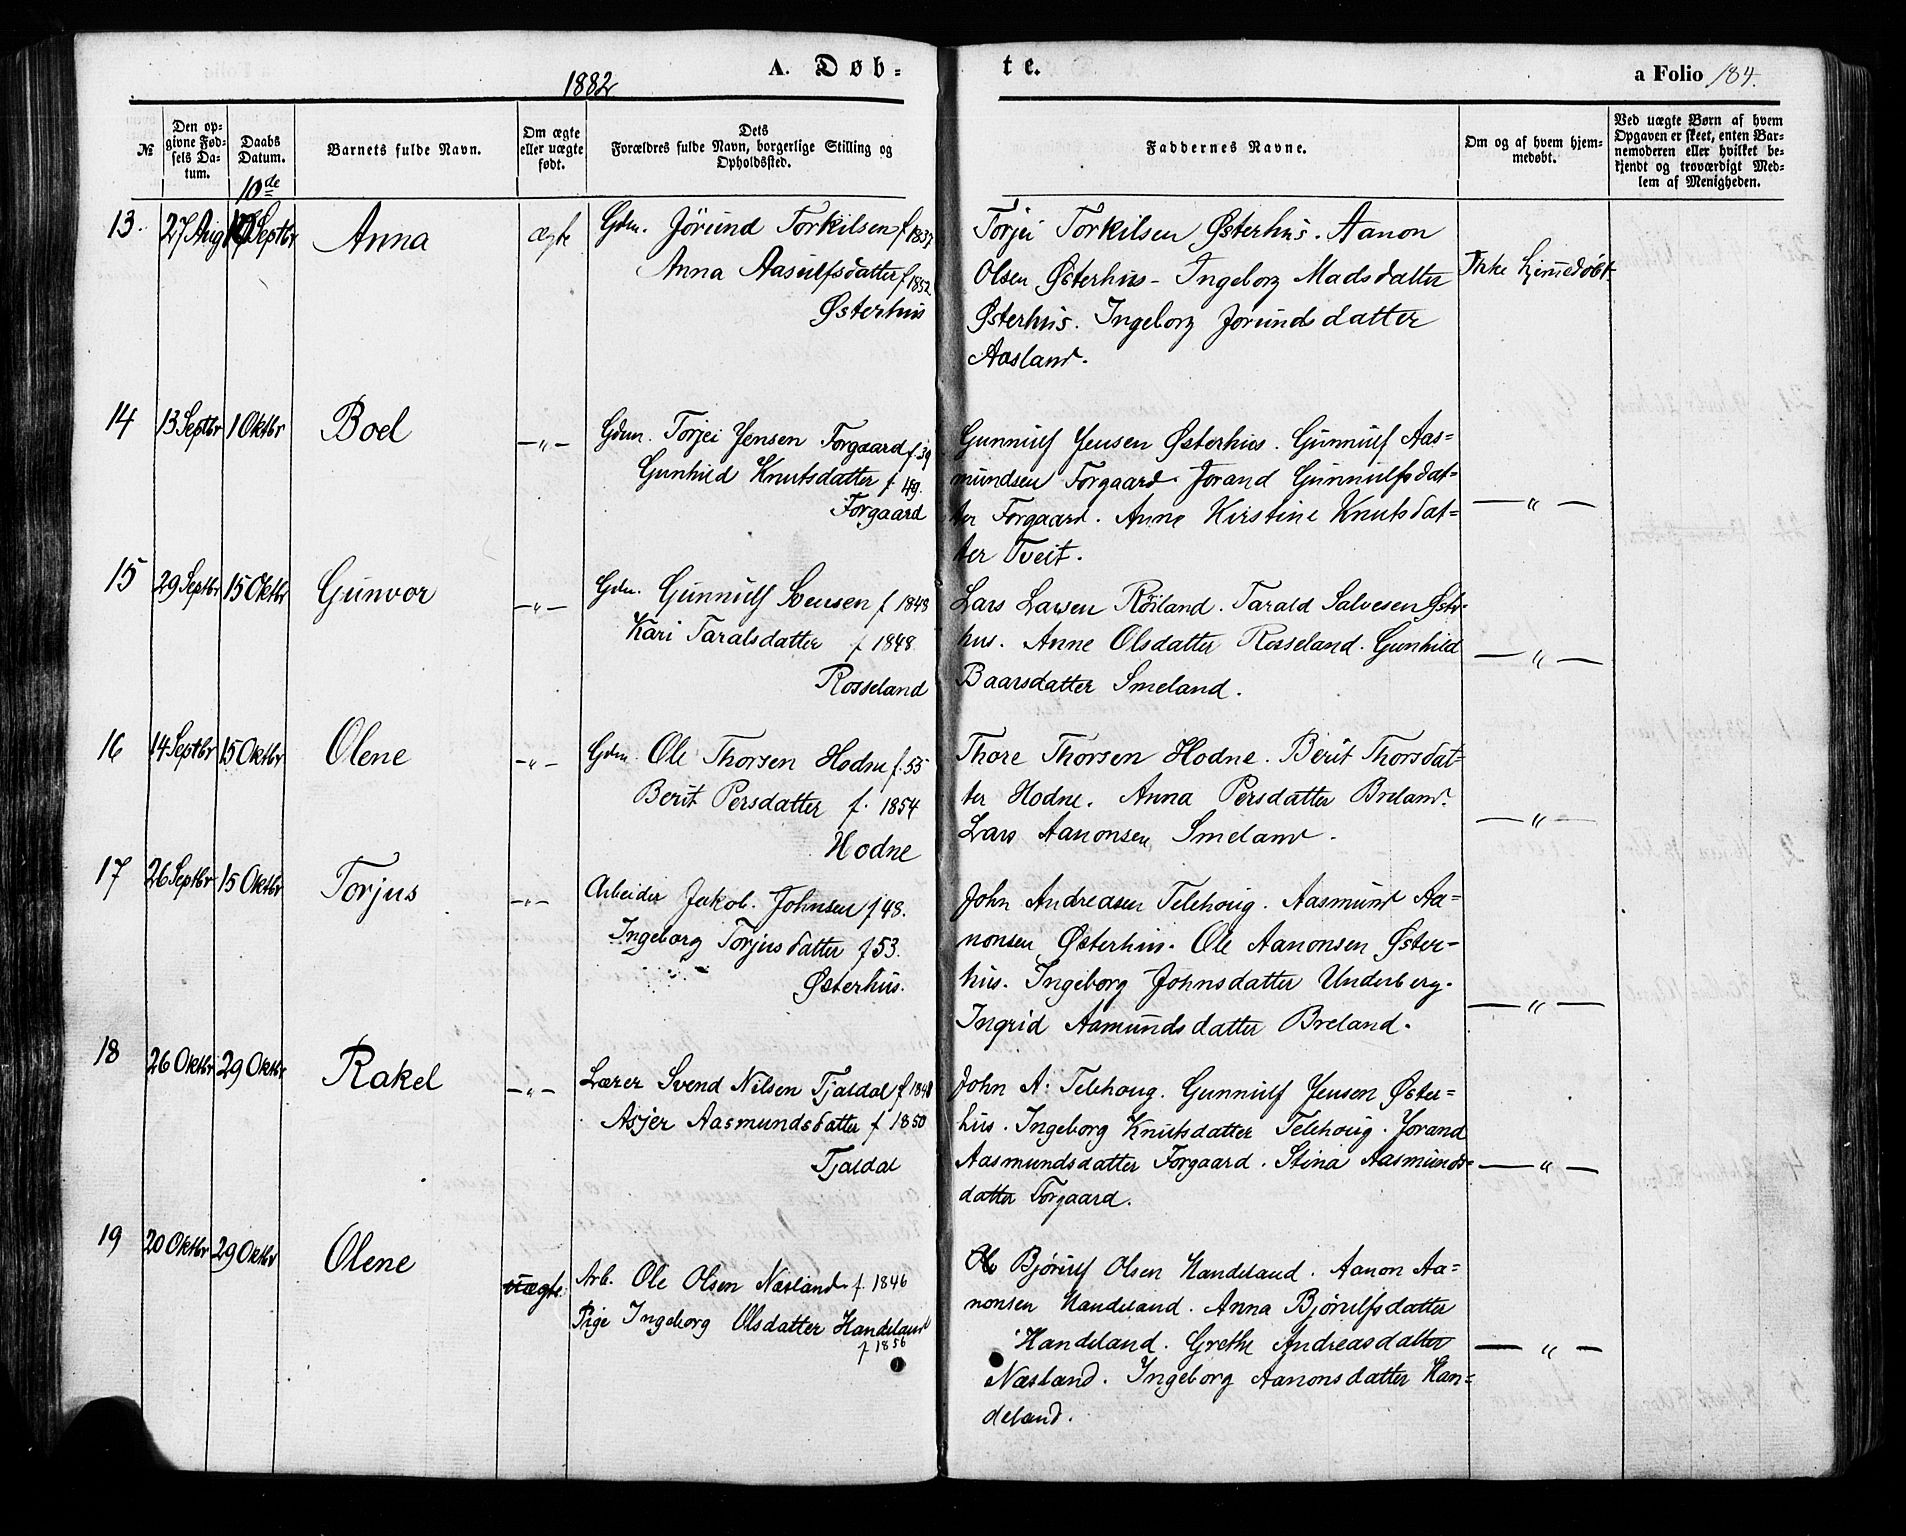 1882
A. Døb-
te.
a Folio 184.
№
Den opgivne Fødsels Datum.
Daabs Datum.
Barnets fulde Navn.
Om ægte eller uægte født.
Dets Forældres fulde Navn, borgerlige Stilling og Opholdssted.
Faddernes Navne.
Om og af hvem hjemmedøbt.
Ved uægte Børn af hvem Opgaven er skeet, enten Barnemoderen eller hvilket bekjendt og troværdigt Medlem af Menigheden.
10de
13. 27 Aug Septbr Anna ægte
Gdm. Jörund Torkilsen f 1837
Anna Aasulfsdatter f 1852
Østerhus
Torjei Torkilsen Østerhus. Aanon
Olsen Østerhus - Ingeborg Madsdatter
Østerhus. Ingeborg Jorundsdatter
Aasland.
Ikke hjemmedøbt
14 13 Septbr 1 Oktbr Boel —"—
Gdm. Torjei Jensen Forgaard f. 39
Gunhild Knutsdatter f. 49.
Forgaard
Gunnulf Jensen Østerhus. Gunnulf Aas=
mundsen Forgaard. Jorand Gunnulfsdat=
ter Forgaard. Anne Kirstine Knutsdat=
ter Tveit.
—"—
15 29 Septbr 15 Oktbr Gunvor —"—
Gdm. Gunnulf Svensen f 1848
Kari Taralsdatter f 1848
Rosseland
Lars Larsen Röiland. Tarald Salvesen Øster-
hus. Anne Olsdatter Rosseland. Gunhild
Baarsdatter Smeland.
—"—
16 14 Septbr 15 Oktbr Olene —"—
Gdm. Ole Thorsen Hodne f. 55
Berit Persdatter f. 1854
Hodne
Thore Thorsen Hodne. Berit Thorsdat-
ter Hodne. Anna Persdatter Breland.
Lars Aanonsen Smeland.
—"—
17 26 Septbr 15 Oktbr Torjus —"—
Arbeider Jakob Johnsen f 48.
Ingeborg Torjusdatter f 53.
Østerhus.
John Andreasen Telehoug. Aasmund Aa=
nonsen Østerhus. Ole Aanonsen Øster-
hus. Ingeborg Johnsdatter Underberg.
Ingrid Aamundsdatter Breland.
—"—
18 26 Oktbr 29 Oktbr Rakel —"—
Lærer Svend Nilsen Tjaldal f 1848
Asjer Aasmundsdatter f 1850
Tjaldal
John A. Telehoug. Gunnulf Jensen Øster=
hus. Ingeborg Knutsdatter Telehoug. Jorand
Aasmundsdatter Forgaard. Stina Aasmunds-
datter Forgaard.
—"—
19 20 Oktbr 29 Oktbr Olene uægte
Arb. Ole Olsen Næsland f. 1846
Pige Ingeborg Olsdatter Handeland
f 1856
Ole Bjørulf Olsen Handeland. Aanon Aa=
nonsen Handeland. Anna Bjørulfsdatter
Handeland. Grethe Andreasdatter
Næsland. Ingeborg Aanonsdatter Han=
deland.
—"—